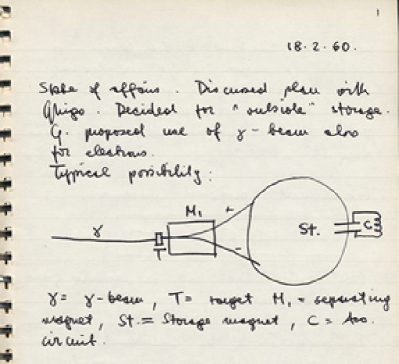 1
18.2.60.
State of affairs. Discussed plan with
Ghigo. Decided for "outside" storage.
G. proposed use of γ-beam also
for electrons.
Typical possibility:
M₁
+
γ
T
−
St.
C
γ = γ-beam, T = target M₁ = separating
magnet, St. = Storage magnet, C = Acc.
circuit.